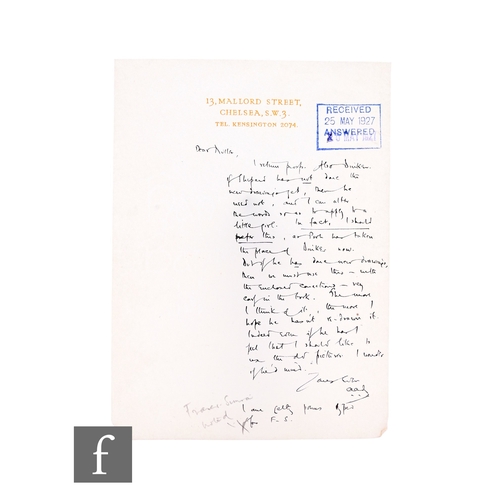 13, MALLORD STREET,
CHELSEA, S.W.3.
TEL. KENSINGTON 2074.
RECEIVED
25 MAY 1927
ANSWERED
MAY 1927
I return proofs. Also Binker.
If Shepard has not done the
new drawings yet, then he
need not, and I can alter
the words so as to apply to a
little girl. In fact, I should
prefer this, as Pooh has taken
the place of Binker now.
But if he has done new drawings,
then we must use this - with
the enclosed corrections - very
early in the book. The more
I think of it, the more I
hope he hasn't re-drawn it.
Indeed even if he has I
feel that I should like to
use the old pictures. I wonder
if he'd mind.
Yours ever
aam
I am
for F. S.
f